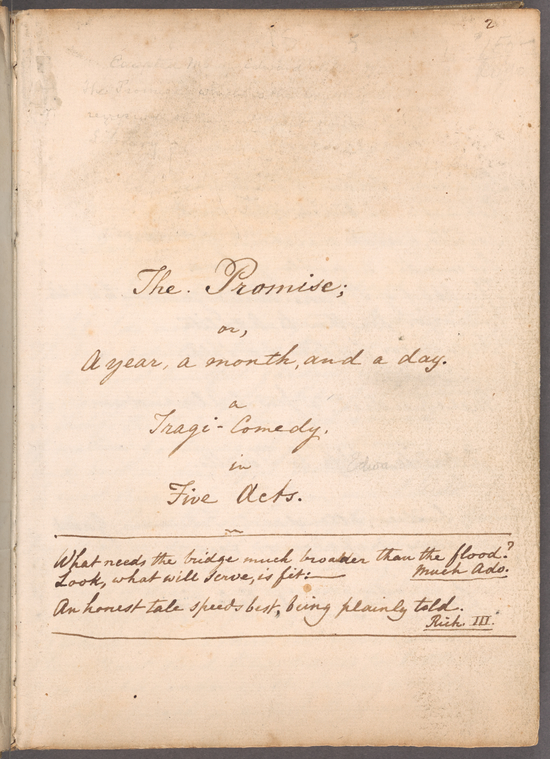 2
The. Promise;
or,
A year, a month, and a day.
a
Tragi-Comedy.
in
Five Acts.
What needs the bridge much broader than the flood?
Look, what will serve, is fit:—
Much Ado.
An honest tale speeds best, being plainly told.
Rich. III.